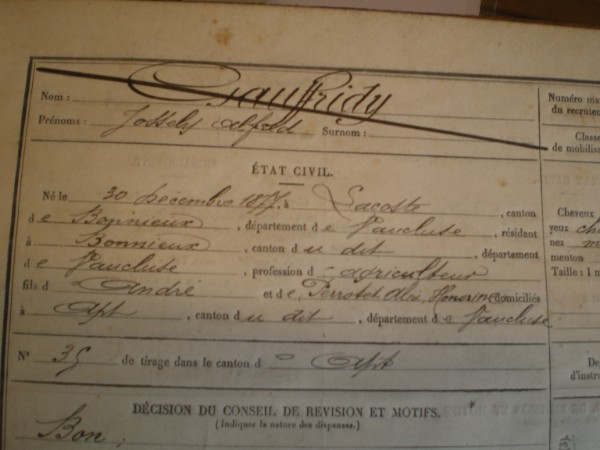 Nom : Gauffridy
Prénoms : Jossely Alfred Surnom :
ÉTAT CIVIL.
Né le 30 Décembre 1877, à Lacoste, canton
de Bonnieux, département de Vaucluse, résidant
à Bonnieux, canton du dit, département
de Vaucluse, profession d agriculteur
fils d André et de Perrotet Honorine domiciliés
à Apt, canton du dit, département de Vaucluse.
N° 35 de tirage dans le canton d Apt
DÉCISION DU CONSEIL DE REVISION ET MOTIFS.
(Indiquer la nature des dispenses.)
Bon.
Numéro
du recrute
Classe
de mobilis
Cheveux
yeux ch
nez m
menton
Taille : 1 m
De
d'instr